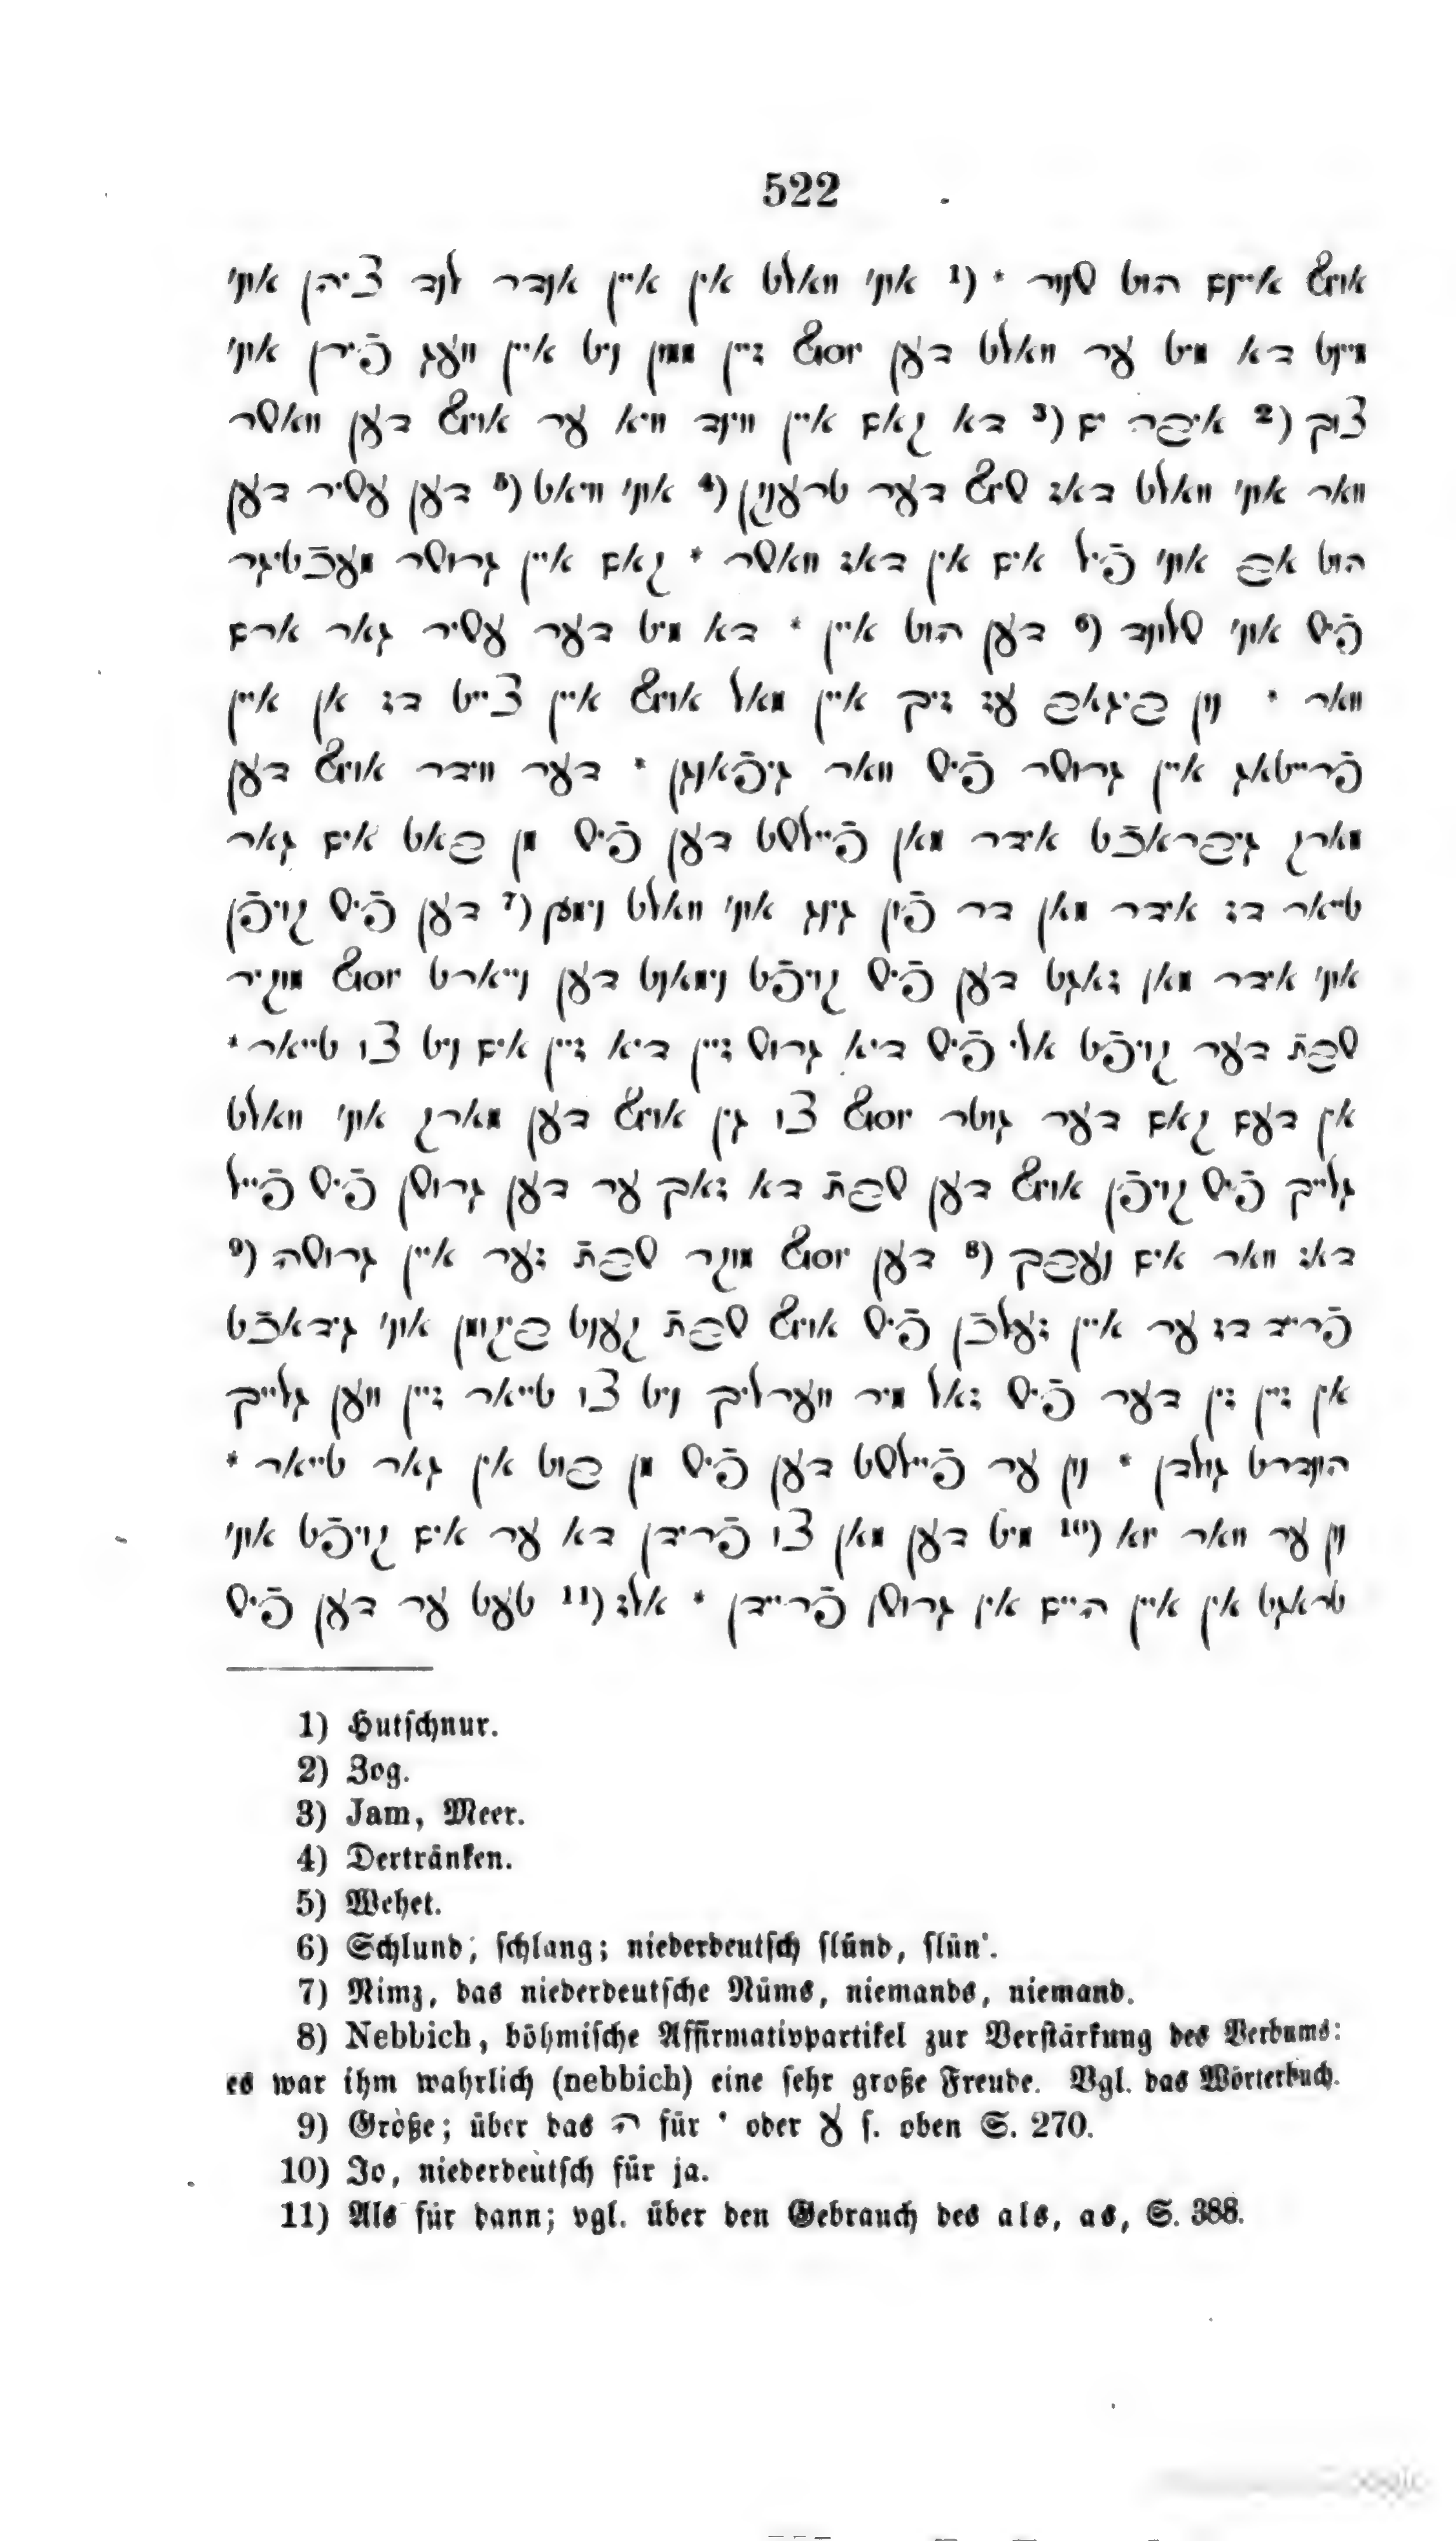 522
אויף איינם הוט שנור * (1 אוני וואלט אין איין אנדר לנד ציהן אוני
מיינט דא מיט ער וואלט דען יוסף זיין ממון ניט איין וועג פֿירן אוני
צוך (2 איבר ים (3 דא קאם איין ווינד וויא ער אויף דען וואשר
וואר אוני וואלט דאז שיף דער טרענקן (4 אוני וויאט (5 דען עשיר דען
הוט אב אוני פֿיל אים אין דאז וואשר * קאם איין גרושר מעכֿטיגר
פֿיש אוני שלונד (6 דען הוט איין * דא מיט דער עשיר גאר ארם
וואר * נון ביגאב עז זיך איין מאל אויף איין צייט דז אן איין
פֿרייטאג איין גרושר פֿיש וואר גיפֿאנגן * דער ווידר אויף דען
מארק גיבראכֿט אידר מאן פֿיילשט דען פֿיש מן באט אים גאר
טייאר דז אידר מאן דר פֿון גינג אוני וואלט נימץ (7 דען פֿיש קויפֿן
אוני אידר מאן זאגט דען פֿיש קויפֿט נימאנט דען נייארט יוסף מוקיר
שבתֿ דער קויפֿט אלי פֿיש דיא גרוש זיין דיא זיין אים ניט צו טייאר *
אין דעם קאם דער גוטר יוסף צו גין אויף דען מארק אוני וואלט
גלייך פֿיש קויפֿן אויף דען שבתֿ דא זאך ער דען גרושן פֿיש פֿייל
דאז וואר אים נעבך (8 דען יוסף מוקר שבתֿ זער איין גרושה (9
פֿרייד דז ער איין זעלכֿן פֿיש אויף שבתֿ קענט ביקומן אוני גידאכֿט
אין זיין זין דער פֿיש זאל מיר ווערליך ניט צו טייאר זיין ווען גלייך
הונדרט גולדן * נון ער פֿיילשט דען פֿיש מן בוט אין גאר טייאר *
נון ער וואר יוא (10 מיט דען מאן צו פֿרידן דא ער אים קויפֿט אוני
טראגט אין איין היים אין גרושן פֿריידן * אלז (11 טעט ער דען פֿיש
1) Hutschnur.
2) Zog.
3) Jam, Meer.
4) Dertränken.
5) Wehet.
6) Schlund, schlang; niederdeutsch slûnd, slün'.
7) Nimz, das niederdeutsche Nüms, niemands, niemand.
8) Nebbich, böhmische Affirmativpartikel zur Verstärkung des Verbums:
es war ihm wahrlich (nebbich) eine sehr große Freude. Vgl. das Wörterbuch.
9) Größe; über das ה für י oder ע s. oben S. 270.
10) Jo, niederdeutsch für ja.
11) Als für dann; vgl. über den Gebrauch des als, as, S. 388.